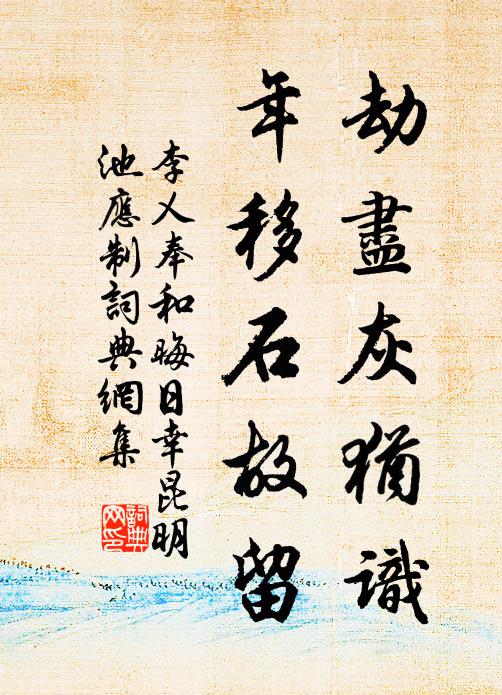 劫盡灰猶識
年移石故留
李乂奉和晦日幸昆明
池應制詞典網集
詞典
网印